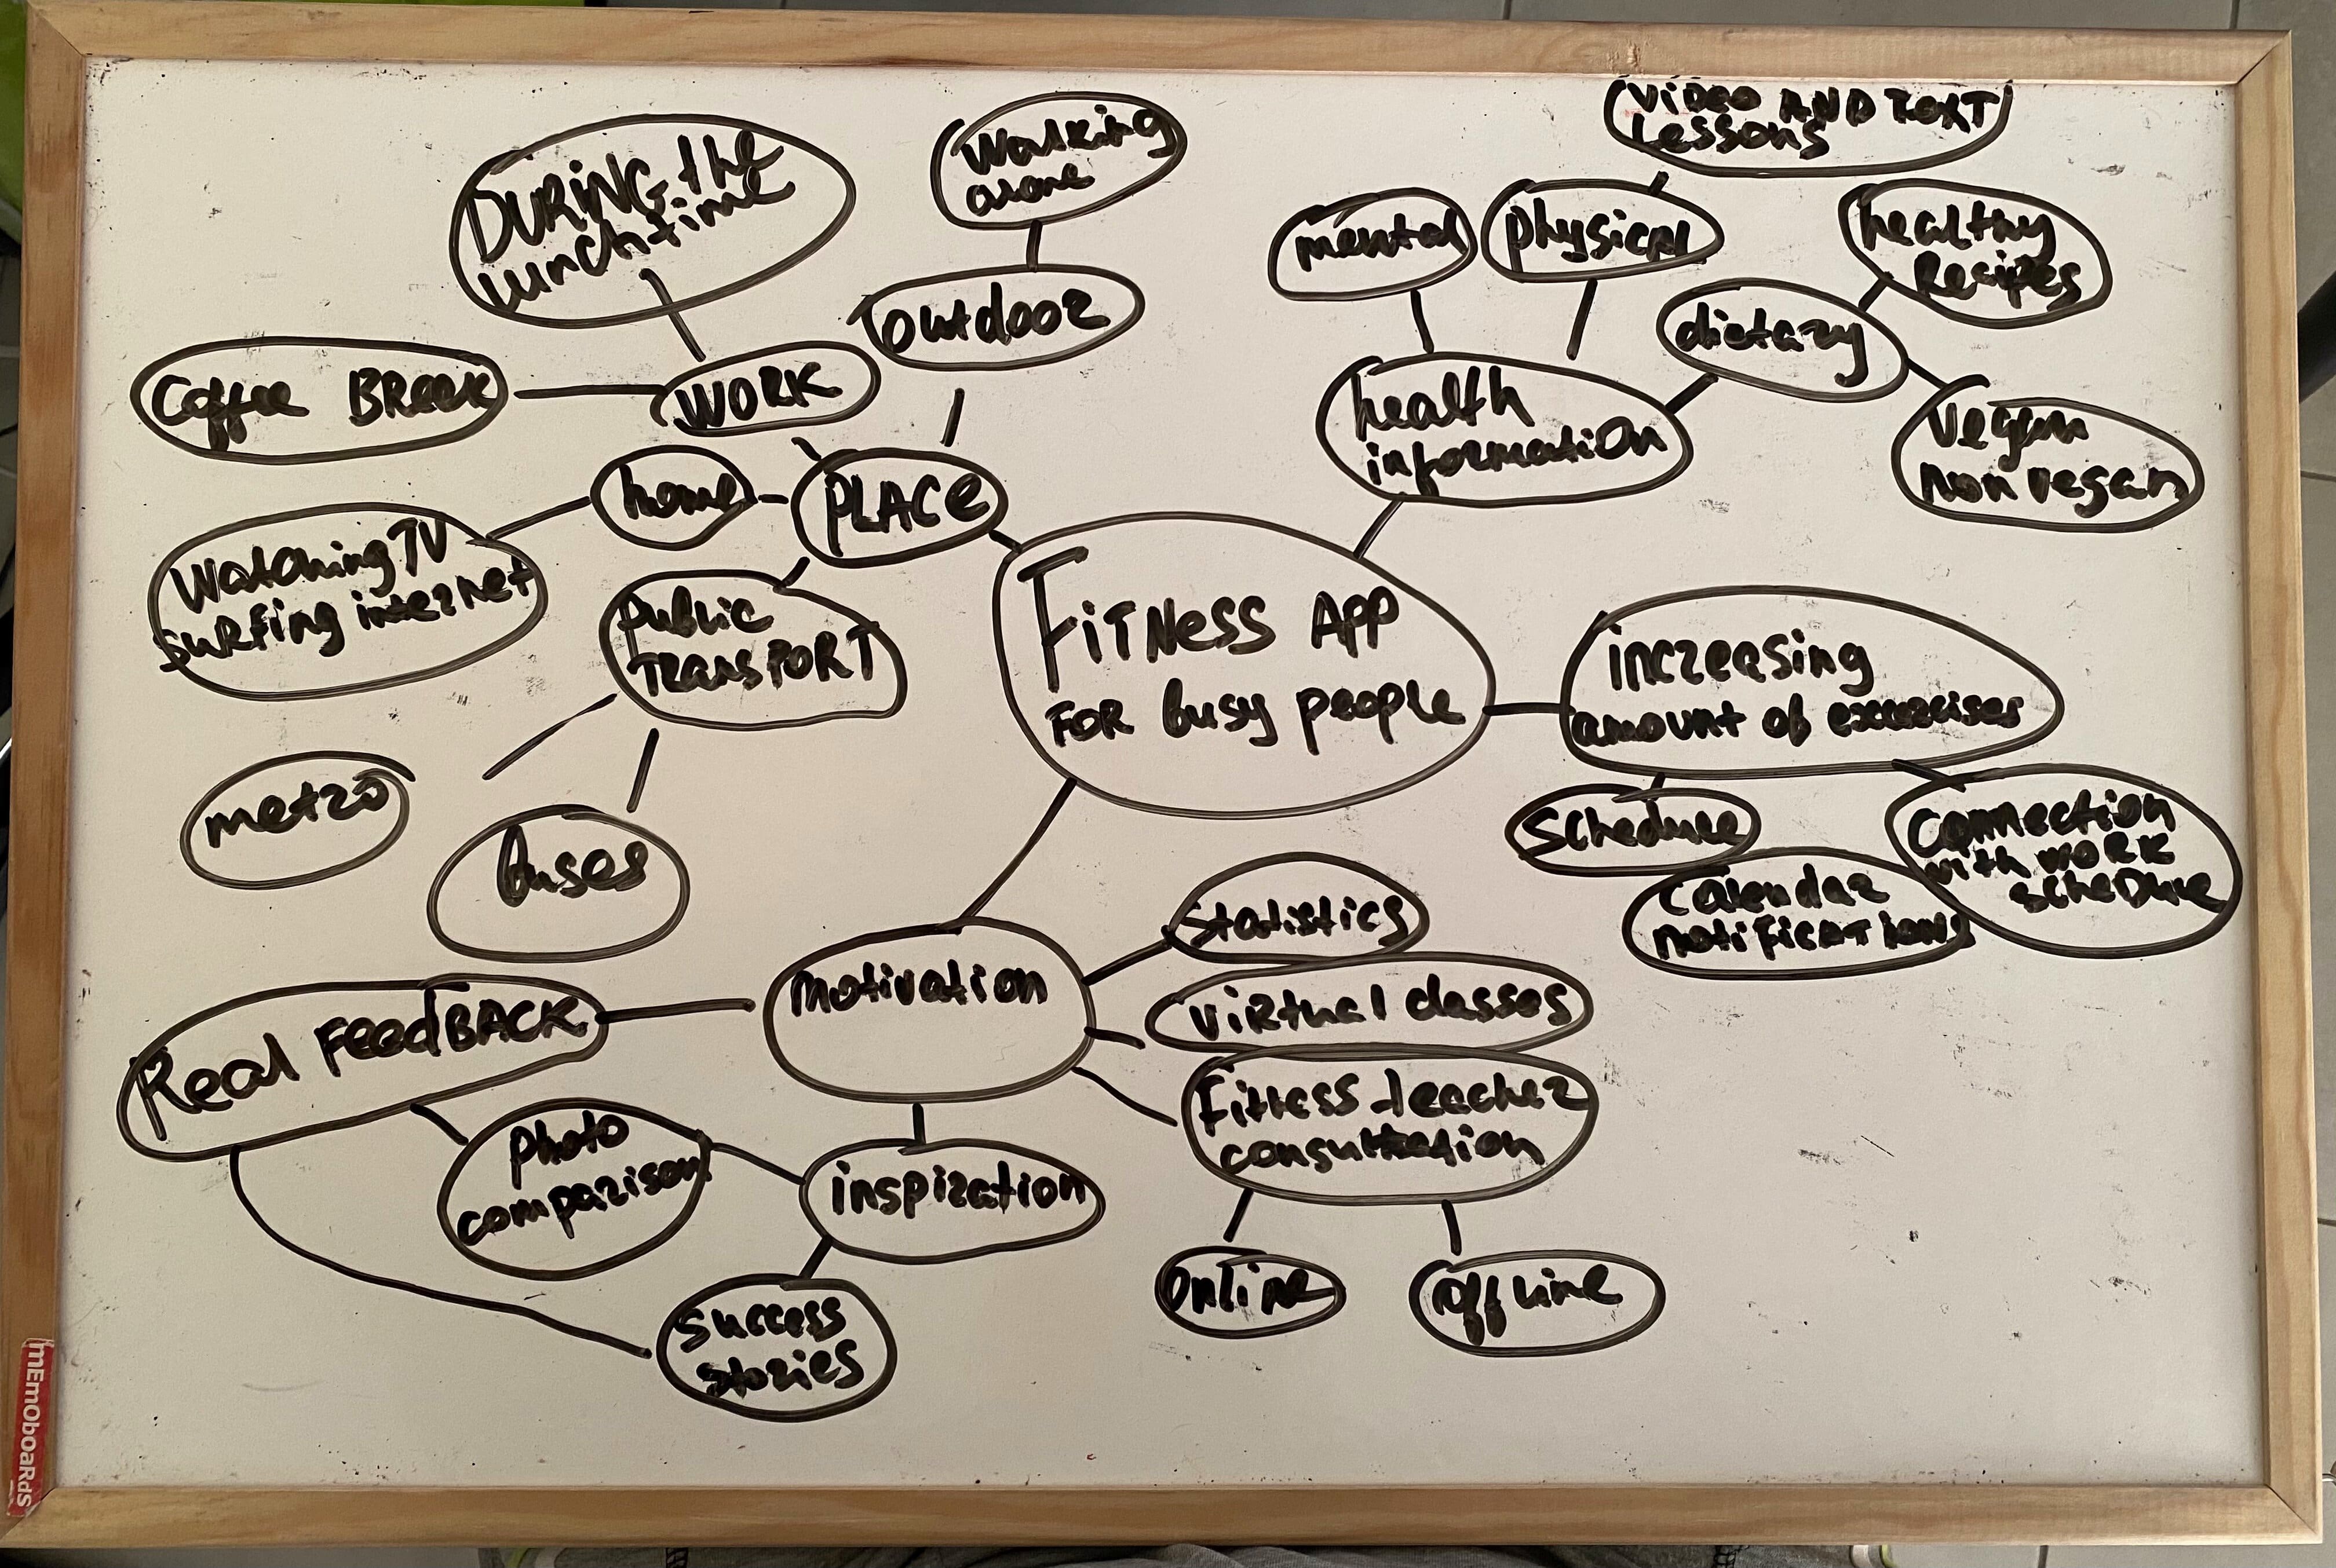 VIDEO AND TEXT
Lessons
Walking
alone
DURING the
lunchtime
mental
physical
healthy
Recipes
outdoor
dietary
Coffee BReak
WORK
health
information
vegan
non vegan
home
PLACe
Watching TV
surfing internet
Public
TRansPORT
FiTNess App
FOR busy people
increasing
amount of excercises
metro
buses
schedule
connection
with work
scheDule
calendar
notifications
statistics
motivation
virtual classes
Real FeedBACK
Fitness teacher
consultation
photo
comparison
inspiration
online
offline
success
stories
mEmOboaRdS